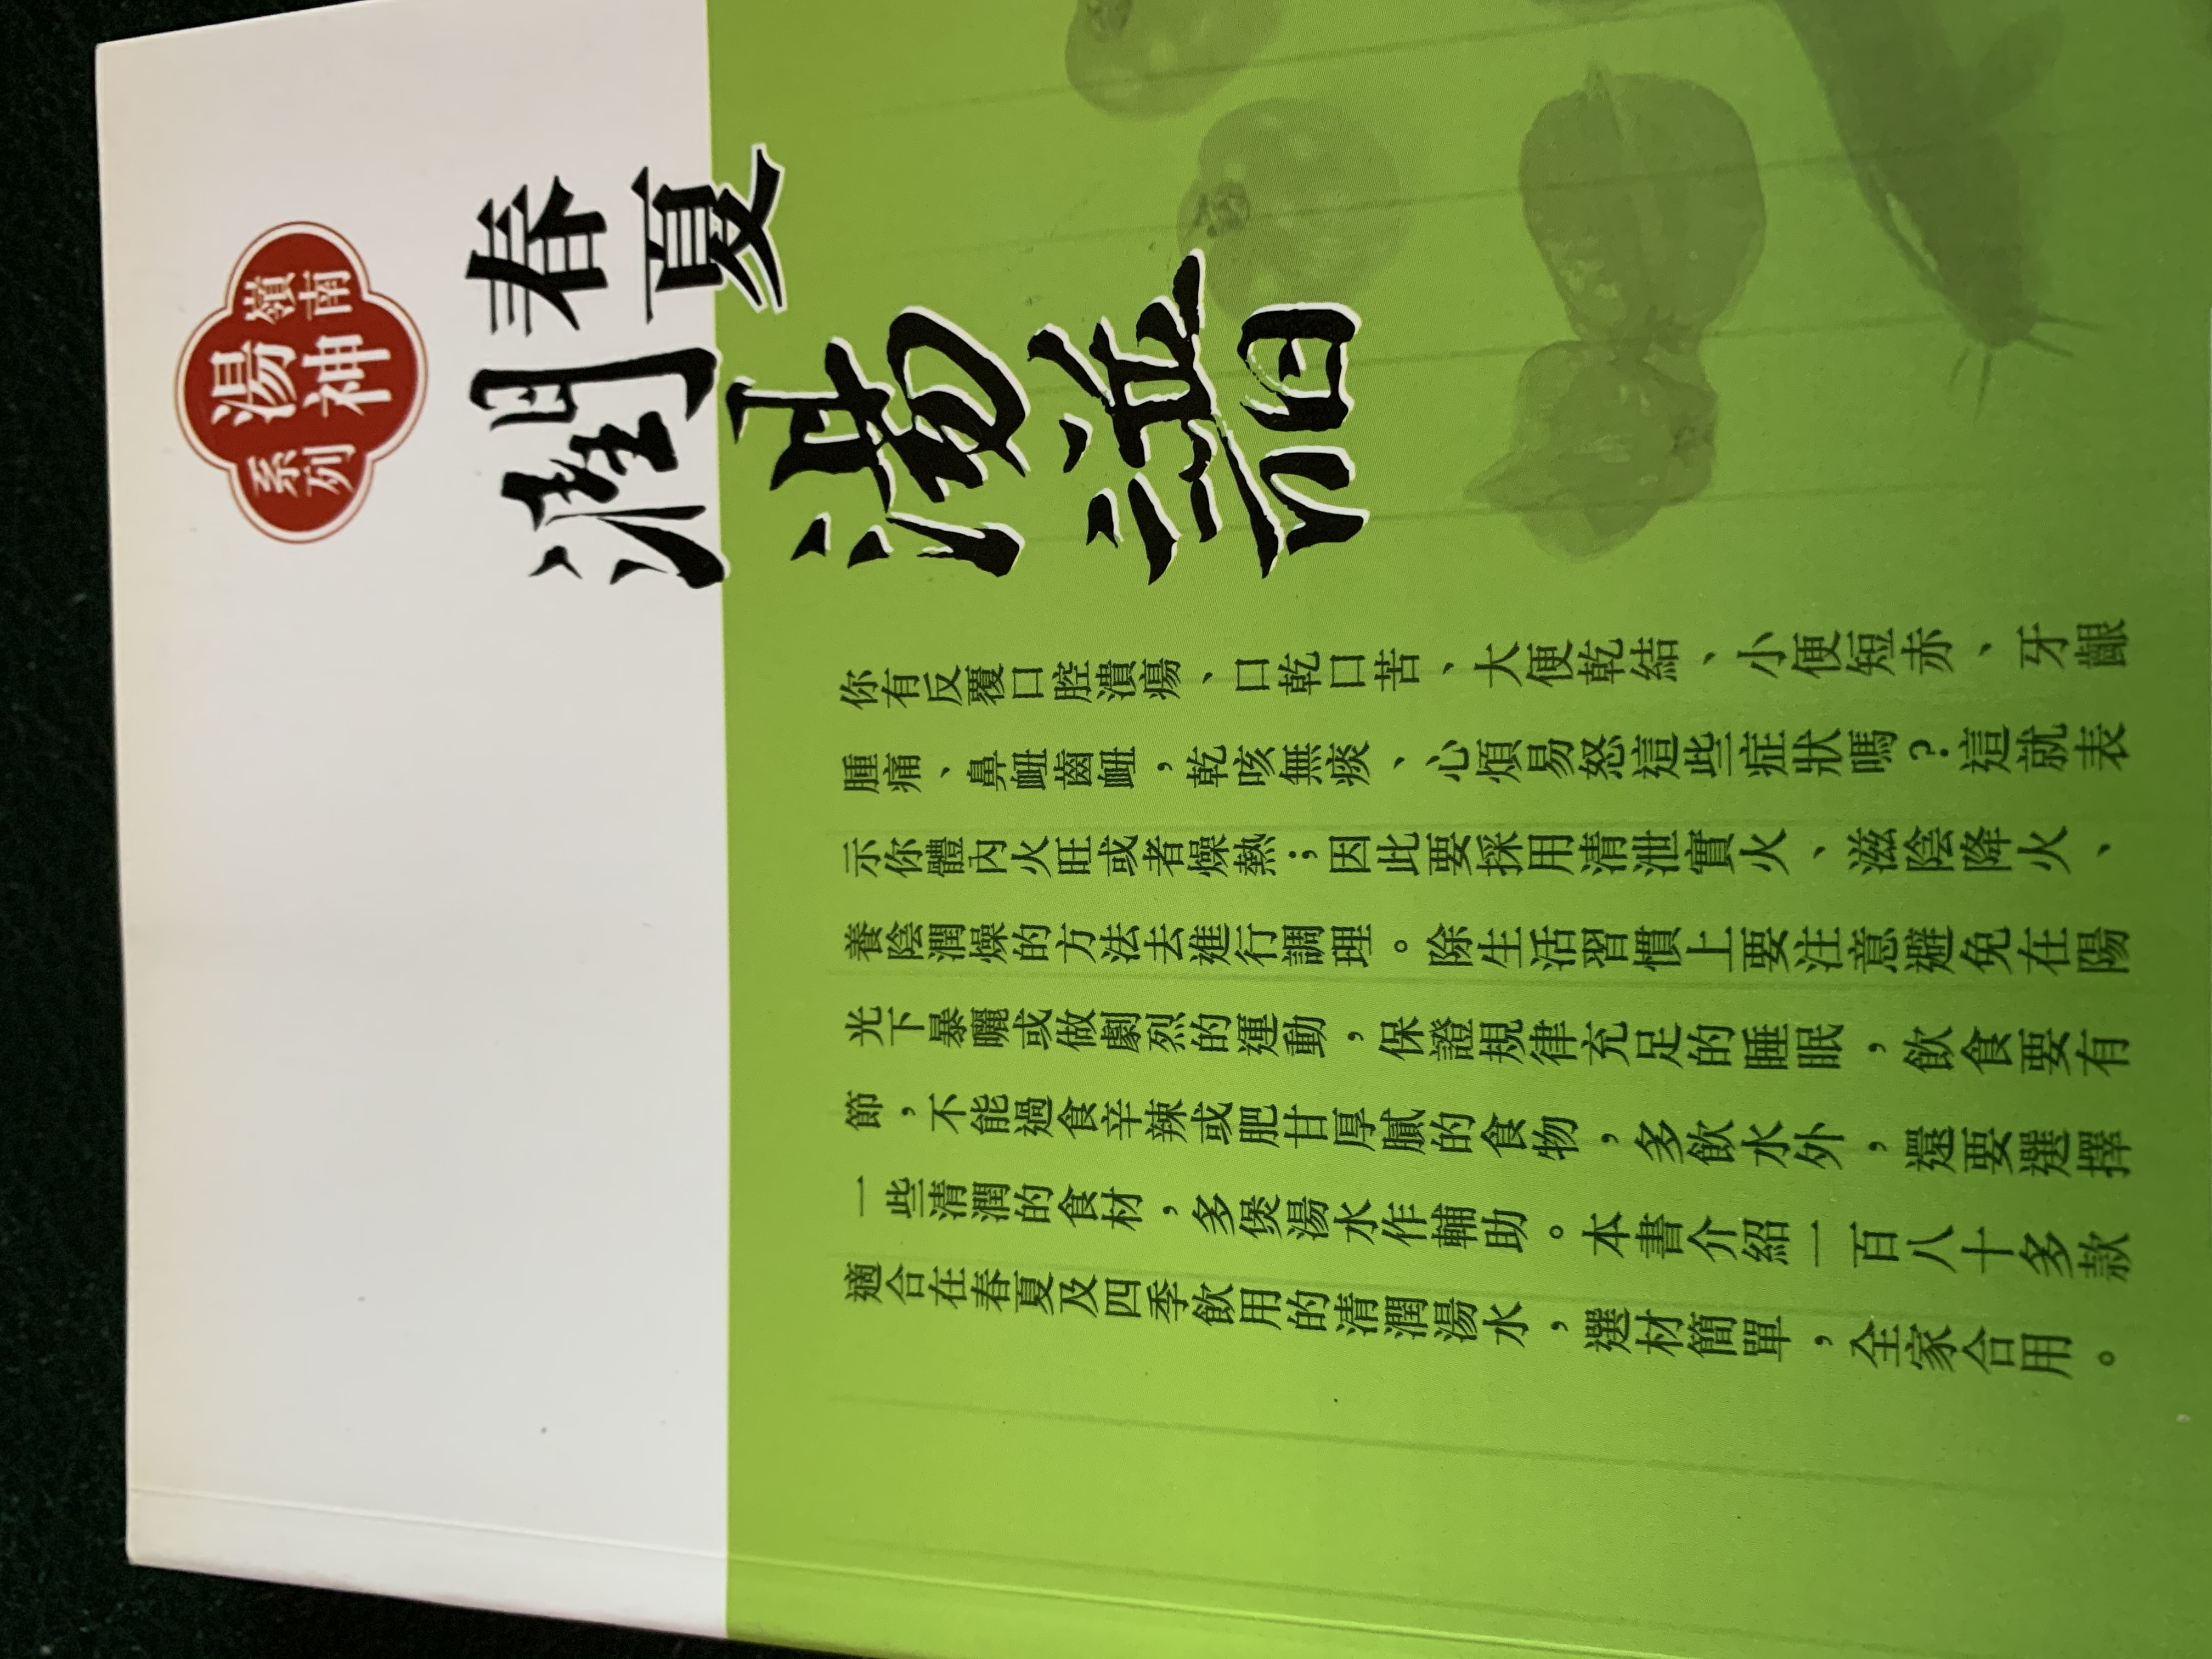 嶺南
湯神
系列
春夏
潤湯譜
你有反覆口腔潰瘍、口乾口苦、大便乾結、小便短赤、牙齦
腫痛、鼻衄齒衄，乾咳無痰、心煩易怒這些症狀嗎？這就表
示你體內火旺或者燥熱；因此要採用清泄實火、滋陰降火、
養陰潤燥的方法去進行調理。除生活習慣上要注意避免在陽
光下暴曬或做劇烈的運動，保證規律充足的睡眠，飲食要有
節，不能過食辛辣或肥甘厚膩的食物，多飲水外，還要選擇
一些清潤的食材，多煲湯水作輔助。本書介紹一百八十多款
適合在春夏及四季飲用的清潤湯水，選材簡單，全家合用。